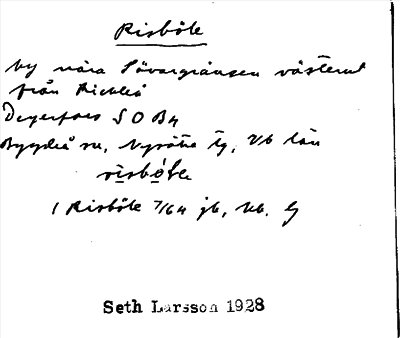 Risböle
by nära Sävargränsen västerut
från Rickleå
Degerfors S O B4
Bygdeå sn, Nysätra tg, Vb län
risbö̀le
1 Risböle 7/64 jb, kb. G
Seth Larsson 1928